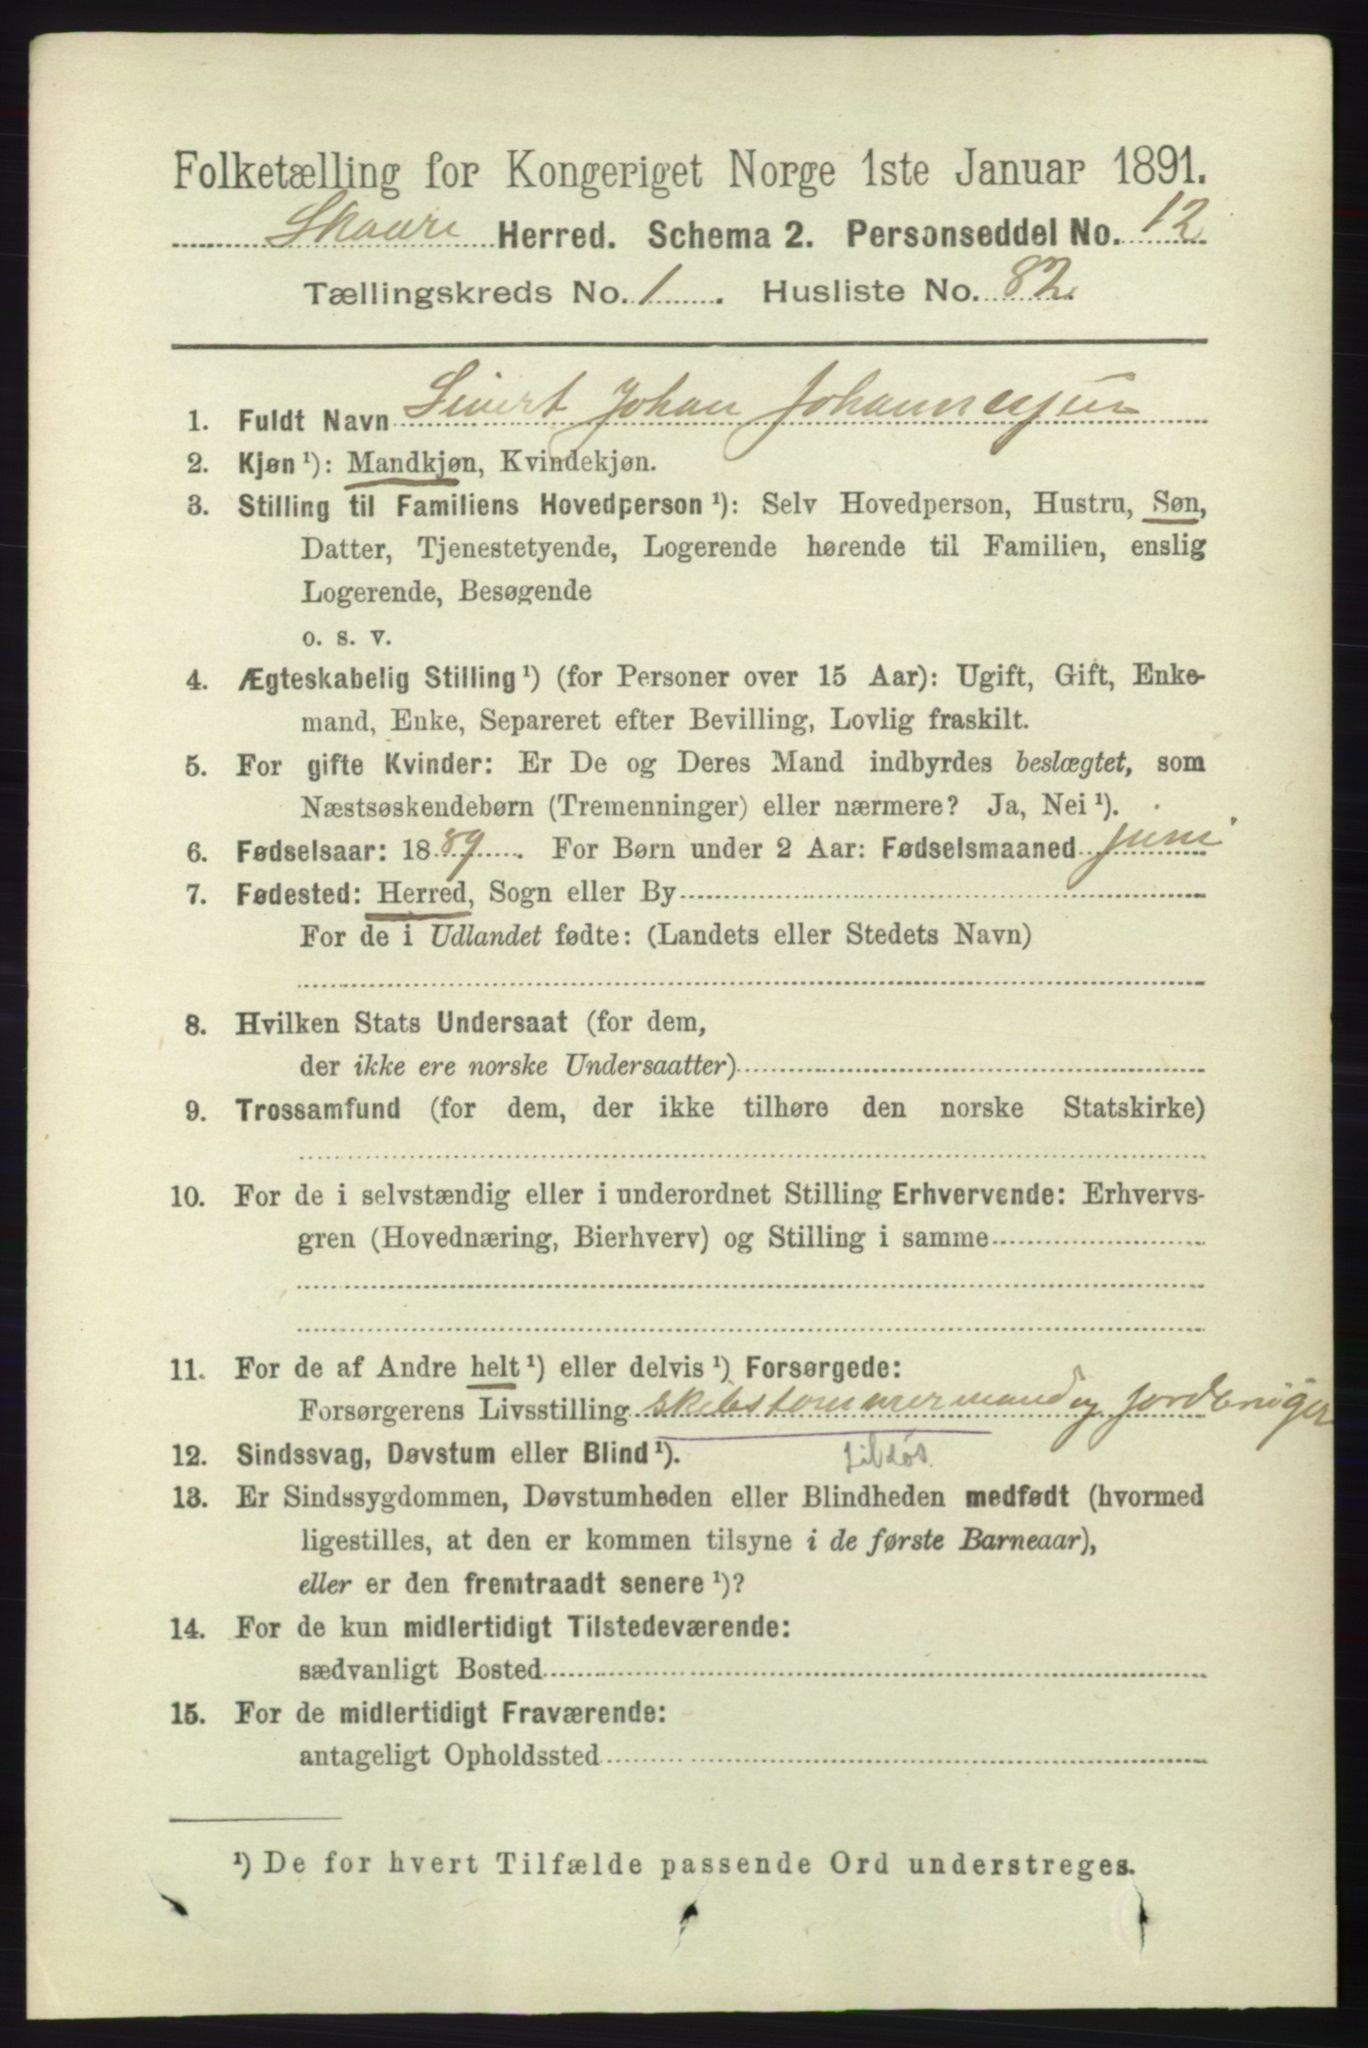 Folketælling for Kongeriget Norge 1ste Januar 1891.
Skaare Herred. Schema 2. Personseddel No. 12
Tællingskreds No. 1. Husliste No. 82.
1. Fuldt Navn Sivert Johan Johannesen
2. Kjøn¹): Mandkjøn, Kvindekjøn.
3. Stilling til Familiens Hovedperson¹): Selv Hovedperson, Hustru, Søn,
Datter, Tjenestetyende, Logerende hørende til Familien, enslig
Logerende, Besøgende
o. s. v.
4. Ægteskabelig Stilling¹) (for Personer over 15 Aar): Ugift, Gift, Enke-
mand, Enke, Separeret efter Bevilling, Lovlig fraskilt.
5. For gifte Kvinder: Er De og Deres Mand indbyrdes beslægtet, som
Næstsøskendebørn (Tremenninger) eller nærmere? Ja, Nei¹).
6. Fødselsaar: 1889. For Børn under 2 Aar: Fødselsmaaned juni
7. Fødested: Herred, Sogn eller By
For de i Udlandet fødte: (Landets eller Stedets Navn)
8. Hvilken Stats Undersaat (for dem,
der ikke ere norske Undersaatter)
9. Trossamfund (for dem, der ikke tilhøre den norske Statskirke)
10. For de i selvstændig eller i underordnet Stilling Erhvervende: Erhvervs-
gren (Hovednæring, Bierhverv) og Stilling i samme
11. For de af Andre helt¹) eller delvis¹) Forsørgede:
Forsørgerens Livsstilling skibstømmermand og jordbruger
12. Sindssvag, Døvstum eller Blind¹).
13. Er Sindssygdommen, Døvstumheden eller Blindheden medfødt (hvormed
ligestilles, at den er kommen tilsyne i de første Barneaar),
eller er den fremtraadt senere¹)?
14. For de kun midlertidigt Tilstedeværende:
sædvanligt Bosted
15. For de midlertidigt Fraværende:
antageligt Opholdssted
¹) De for hvert Tilfælde passende Ord understreges.